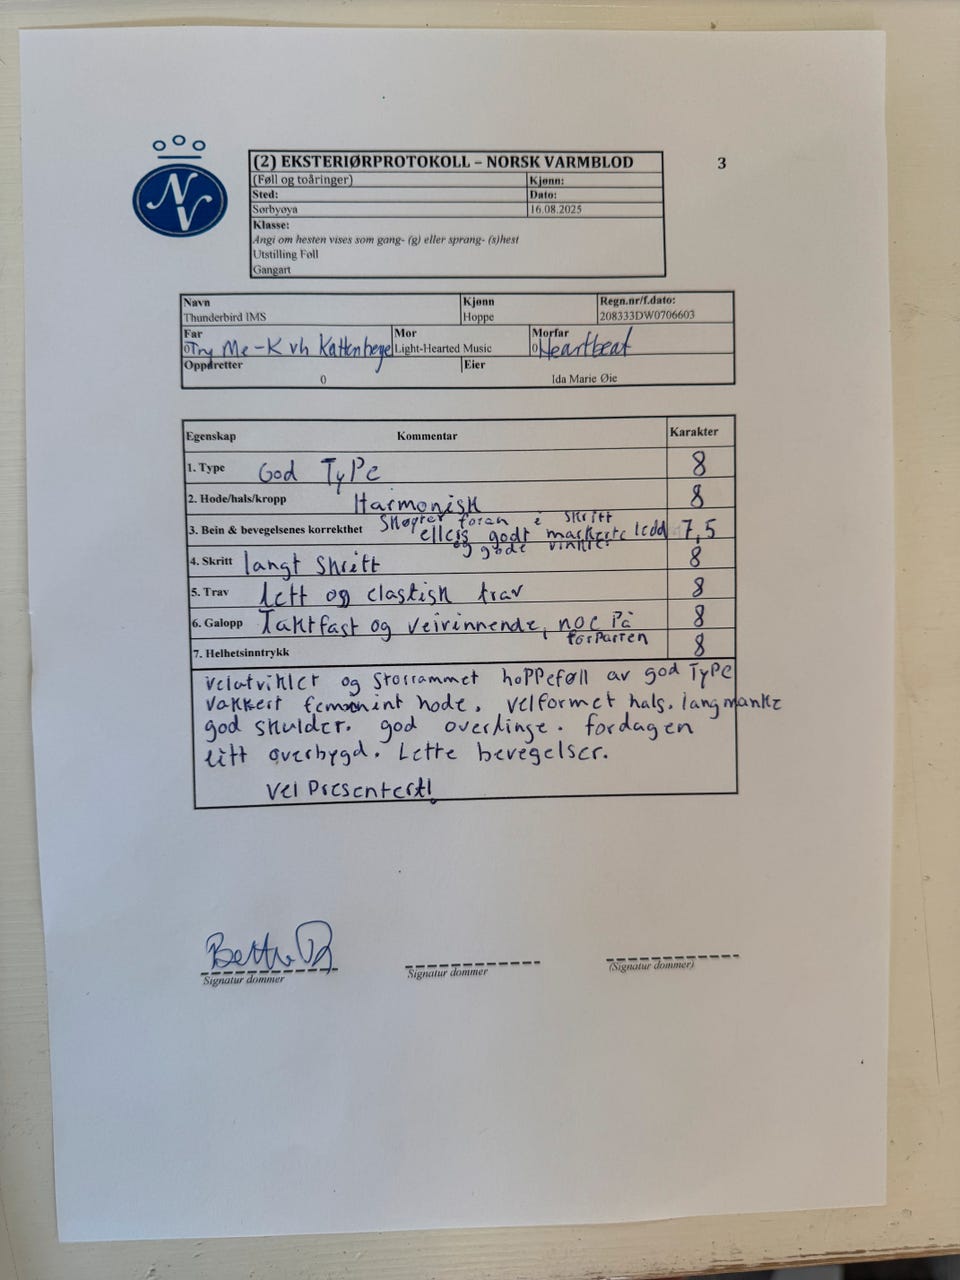 NV
(2) EKSTERIØRPROTOKOLL – NORSK VARMBLOD
3
(Føll og toåringer) Kjønn:
Sted: Dato:
Sørbyøya 16.08.2025
Klasse:
Angi om hesten vises som gang- (g) eller sprang- (s)hest
Utstilling Føll
Gangart
Navn Kjønn Regn.nr/f.dato:
Thunderbird IMS Hoppe 208333DW0706603
Far Mor Morfar
0 Try Me-K vh Kattenheye Light-Hearted Music 0 Heartbeat
Oppdretter Eier
0 Ida Marie Øie
Egenskap Kommentar Karakter
1. Type God TyPe 8
2. Hode/hals/kropp Harmonisk 8
3. Bein & bevegelsenes korrekthet foran i skritt
ellers godt markerte ledd 7,5
og gode vinkler
4. Skritt langt skritt 8
5. Trav lett og elastisk trav 8
6. Galopp Taktfast og veivinnende, noe På 8
forParten
7. Helhetsinntrykk 8
velutviklet og storrammet hoPPeføll av god TyPe
vakkert feminint hode. velformet hals. lang manke
god skulder. god overlinje. fordagen
litt overbygd. Lette bevegelser.
vel Presentert!
Signatur dommer Signatur dommer (Signatur dommer)